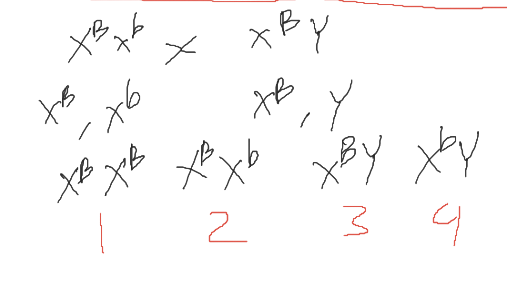 X^B X^b x X^B Y
X^B, X^b X^B, Y
X^B X^B X^B X^b X^B Y X^b Y
1 2 3 4